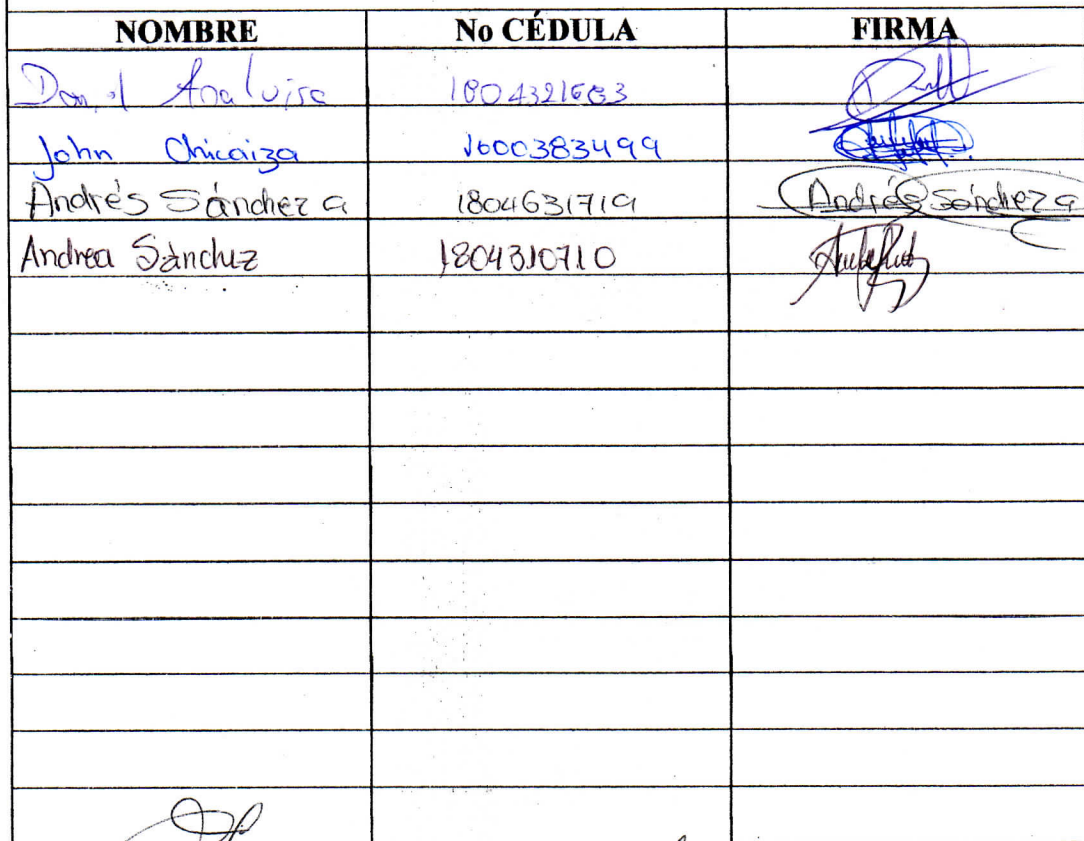 NOMBRE No CÉDULA FIRMA
Daniel Analuisa 1804321683
John Chicaiza 1600383499
Andrés Sánchez G 1804631719 Andrés Sánchez G
Andrea Sánchez 1804310710